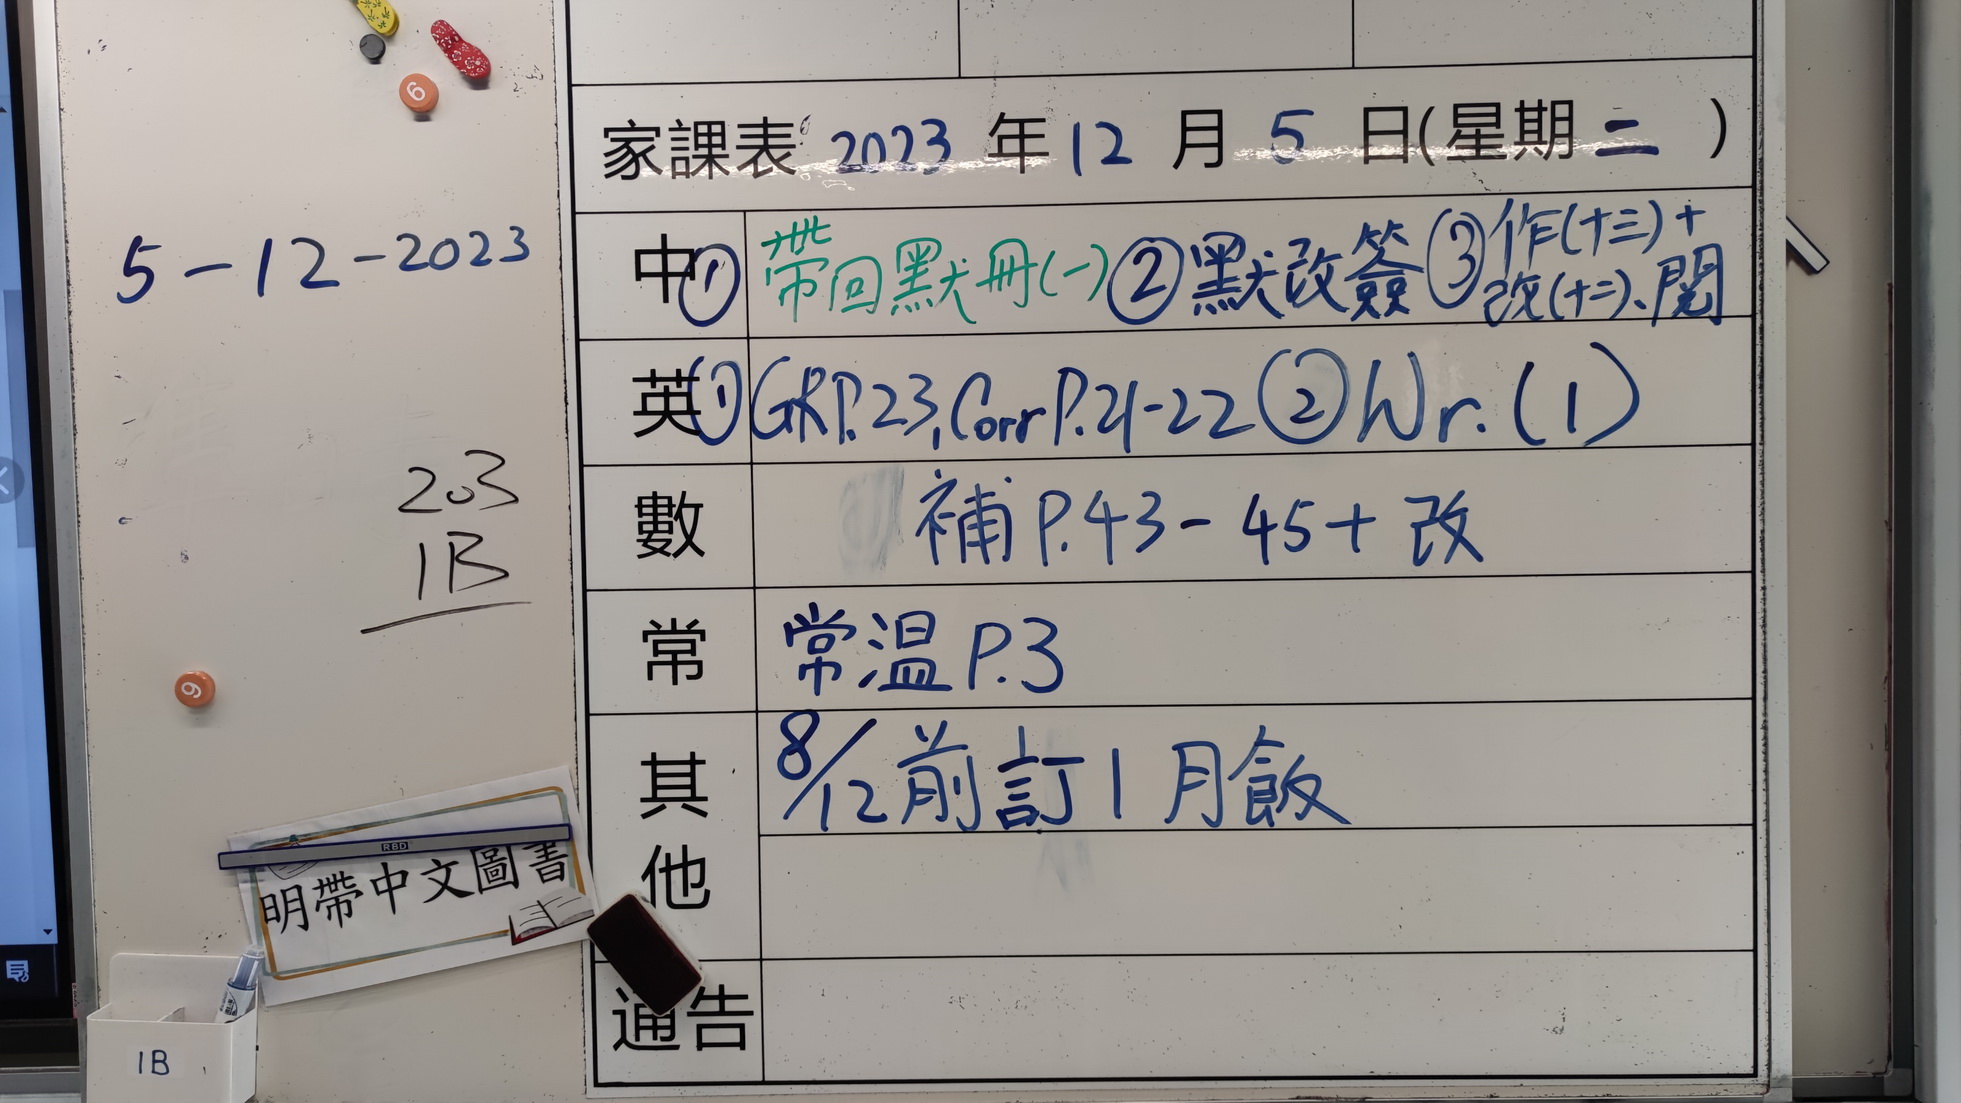 家課表 2023 年 12 月 5 日(星期二)
5-12-2023
中 ① 帶回默冊(一) ② 默改簽 ③ 作(十三)+
改(十二)、閱
英 ① GRP.23, Corr P.21-22 ② Wr. (1)
203
1B
數 補 P.43-45+改
常 常温 P.3
其他 8/12 前訂 1 月飯
通告
RBD
明帶中文圖書
1B
6
6